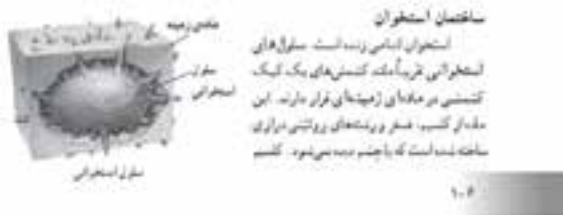 ساختمان استخوان
استخوان اندامی زنده است. سلول‌های
استخوانی تقریباً مانند کشمش‌های یک کیک
کشمشی در ماده‌ای زمینه‌ای قرار دارند. این
ماده از کلسیم، فسفر و رشته‌های پروتئینی درازی
ساخته شده است که با چشم دیده نمی‌شود. کلسیم
ماده‌ی زمینه
سلول
استخوانی
سلول استخوانی
۱۰۶